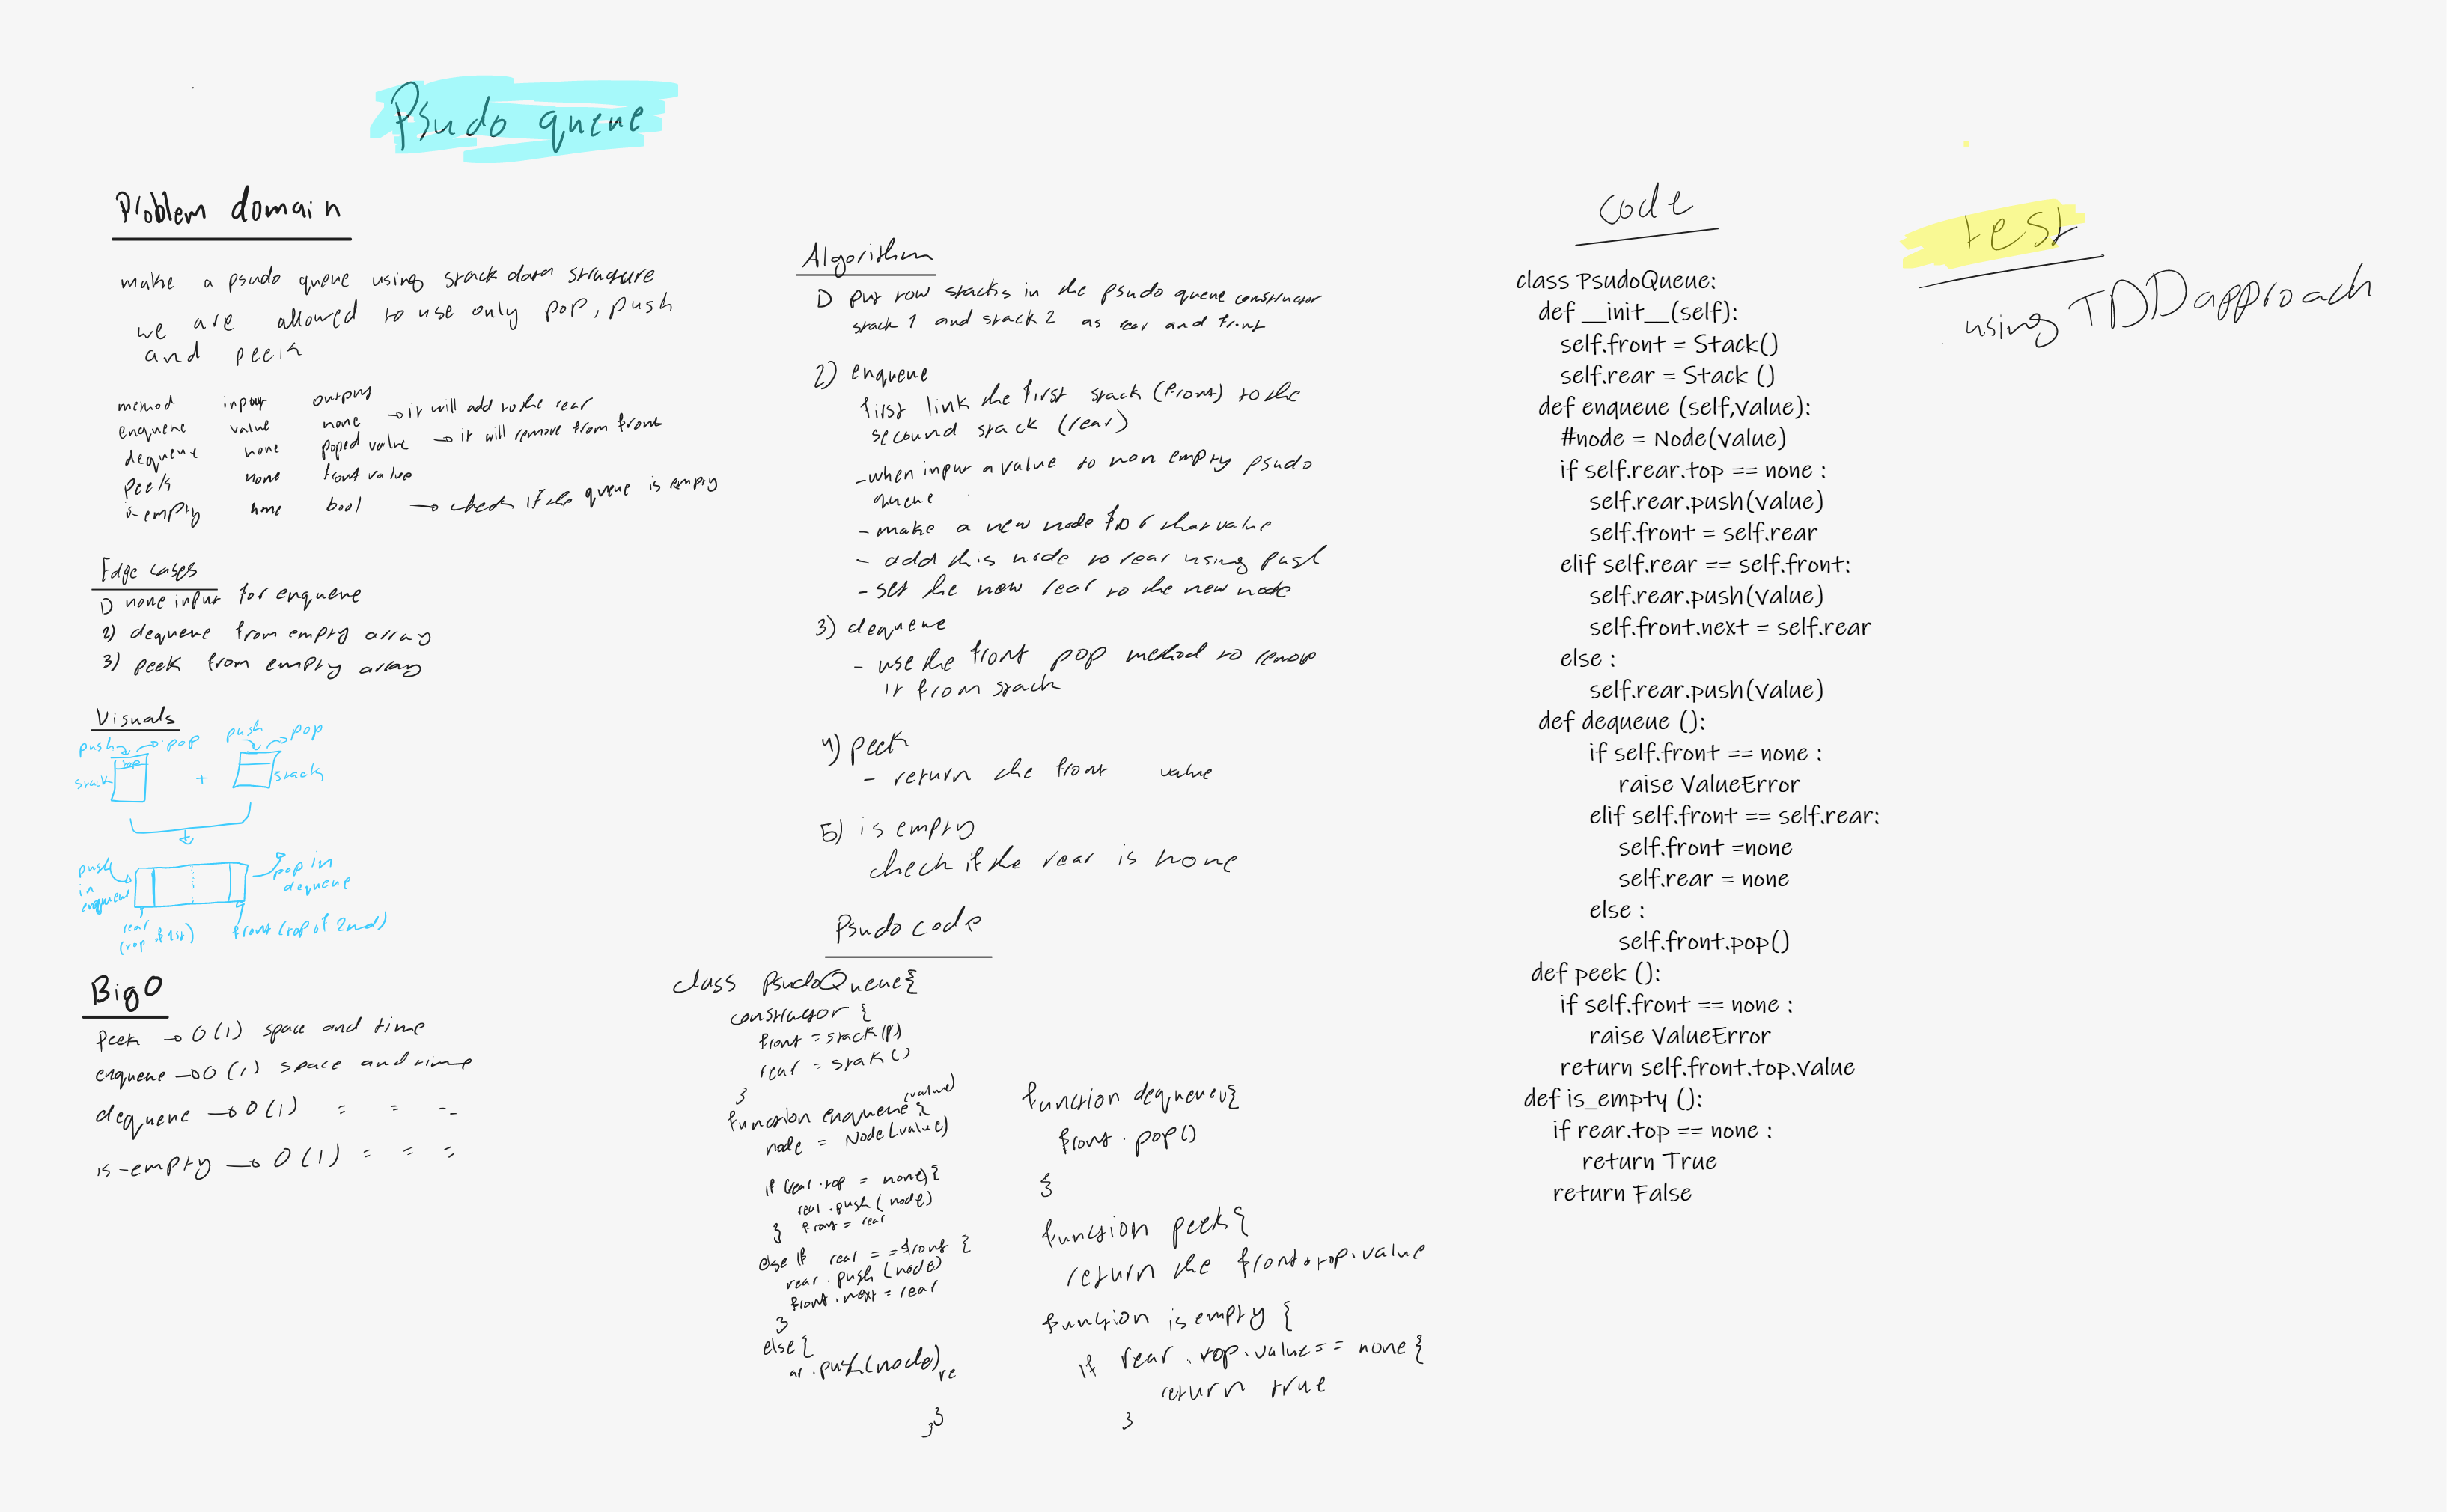 Psudo queue
Problem domain
make a psudo queue using stack data structure
we are allowed to use only pop, push
and peek
method input output
enqueue value none → it will add to the rear
dequeue none poped value → it will remove from front
peek none front value
is-empty none bool → check if the queue is empty
Edge cases
1) none input for enqueue
2) dequeue from empty array
3) peek from empty array
Visuals
push pop push pop
top
stack + stack
push in enqueue
pop in dequeue
rear (top of 1st)
front (top of 2nd)
Big O
Peek → O(1) space and time
enqueue → O(1) space and time
dequeue → O(1) = = =
is-empty → O(1) = = =
Algorithm
1) put tow stacks in the psudo queue constructor
stack 1 and stack 2 as rear and front
2) enqueue
first link the first stack (front) to the
secound stack (rear)
- when input a value to non empty psudo
queue
- make a new node for that value
- add this node to rear using push
- set the new rear to the new node
3) dequeue
- use the front pop method to remove
it from stack
4) peek
- return the front value
5) is empty
check if the rear is none
Psudo code
class PsudoQueue{
constructor {
front = stack()
rear = stak()
}
function enqueue (value) {
node = Node(value)
if (rear.top = none){
rear.push(node)
} front = rear
else if rear == front {
rear.push(node)
front.next = rear
}
else{
ar.push(node) re
}}
function dequeue(){
front.pop()
}
function peek{
return the front.top.value
function is empty {
if rear.top.value == none{
return true
}
code
class PsudoQueue:
def __init__(self):
self.front = Stack()
self.rear = Stack ()
def enqueue (self,value):
#node = Node(value)
if self.rear.top == none :
self.rear.push(value)
self.front = self.rear
elif self.rear == self.front:
self.rear.push(value)
self.front.next = self.rear
else :
self.rear.push(value)
def dequeue ():
if self.front == none :
raise ValueError
elif self.front == self.rear:
self.front =none
self.rear = none
else :
self.front.pop()
def peek ():
if self.front == none :
raise ValueError
return self.front.top.value
def is_empty ():
if rear.top == none :
return True
return False
test
using TDD approach